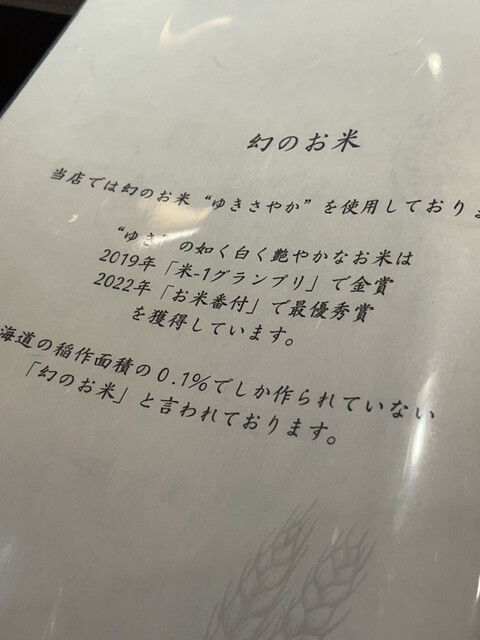 幻のお米
当店では幻のお米“ゆきさやか”を使用しており
“ゆき の如く白く艶やかなお米は
2019年「米-1グランプリ」で金賞
2022年「お米番付」で最優秀賞
を獲得しています。
海道の稲作面積の0.1%でしか作られていない
「幻のお米」と言われております。